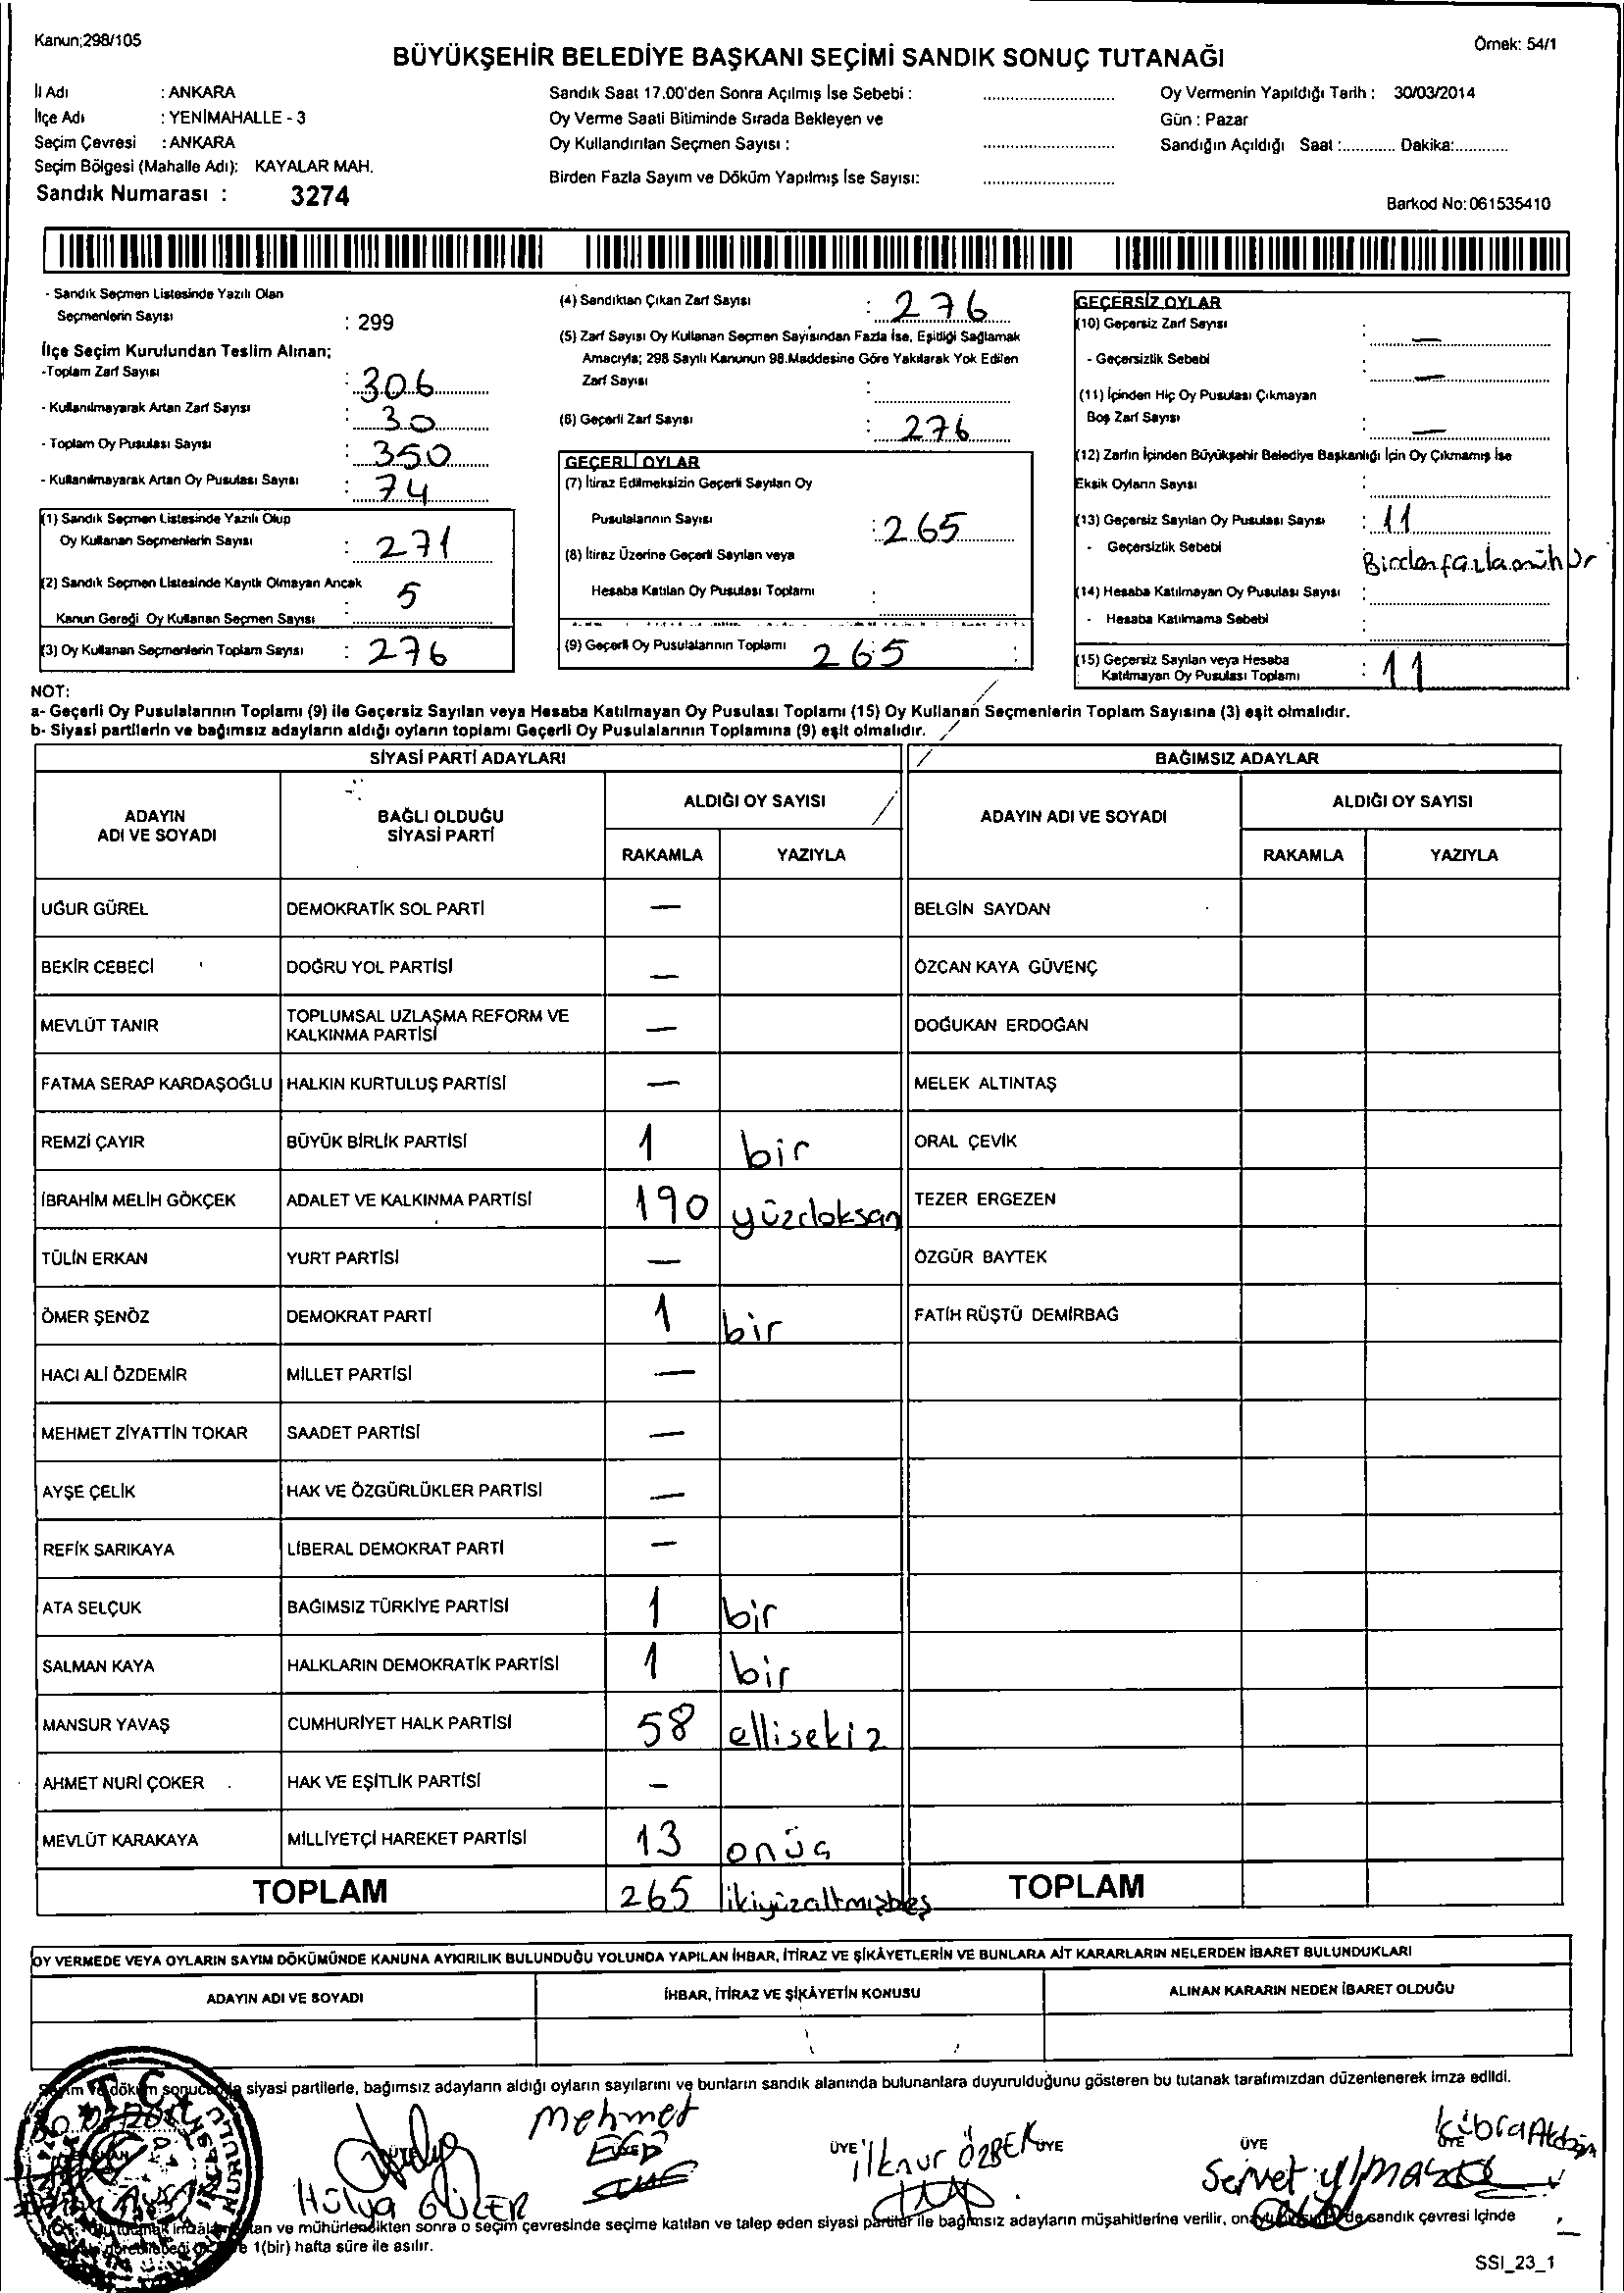 Kanun;298/105
Örnek: 54/1
BÜYÜKŞEHİR BELEDİYE BAŞKANI SEÇİMİ SANDIK SONUÇ TUTANAĞI
İl Adı : ANKARA
İlçe Adı : YENİMAHALLE - 3
Seçim Çevresi : ANKARA
Seçim Bölgesi (Mahalle Adı): KAYALAR MAH.
Sandık Numarası : 3274
Sandık Saat 17.00'den Sonra Açılmış İse Sebebi :
Oy Verme Saati Bitiminde Sırada Bekleyen ve
Oy Kullandırılan Seçmen Sayısı :
Birden Fazla Sayım ve Döküm Yapılmış İse Sayısı:
Oy Vermenin Yapıldığı Tarih : 30/03/2014
Gün : Pazar
Sandığın Açıldığı Saat :............ Dakika:............
Barkod No: 061535410
- Sandık Seçmen Listesinde Yazılı Olan
Seçmenlerin Sayısı : 299
İlçe Seçim Kurulundan Teslim Alınan;
-Toplam Zarf Sayısı : 306
- Kullanılmayarak Artan Zarf Sayısı : 30
- Toplam Oy Pusulası Sayısı : 350
- Kullanılmayarak Artan Oy Pusulası Sayısı : 74
(1) Sandık Seçmen Listesinde Yazılı Olup
Oy Kullanan Seçmenlerin Sayısı : 271
(2) Sandık Seçmen Listesinde Kayıtlı Olmayan Ancak
Kanun Gereği Oy Kullanan Seçmen Sayısı : 5
(3) Oy Kullanan Seçmenlerin Toplam Sayısı : 276
(4) Sandıktan Çıkan Zarf Sayısı : 276
(5) Zarf Sayısı Oy Kullanan Seçmen Sayısından Fazla İse, Eşitliği Sağlamak
Amacıyla; 298 Sayılı Kanunun 98.Maddesine Göre Yakılarak Yok Edilen
Zarf Sayısı :
(6) Geçerli Zarf Sayısı : 276
GEÇERLİ OYLAR
(7) İtiraz Edilmeksizin Geçerli Sayılan Oy
Pusulalarının Sayısı : 265
(8) İtiraz Üzerine Geçerli Sayılan veya
Hesaba Katılan Oy Pusulası Toplamı :
(9) Geçerli Oy Pusulalarının Toplamı 265 :
GEÇERSİZ OYLAR
(10) Geçersiz Zarf Sayısı : —
- Geçersizlik Sebebi : —
(11) İçinden Hiç Oy Pusulası Çıkmayan
Boş Zarf Sayısı : —
(12) Zarfın İçinden Büyükşehir Belediye Başkanlığı İçin Oy Çıkmamış İse
Eksik Oyların Sayısı :
(13) Geçersiz Sayılan Oy Pusulası Sayısı : 11
- Geçersizlik Sebebi Birden fazla mühür
(14) Hesaba Katılmayan Oy Pusulası Sayısı :
- Hesaba Katılmama Sebebi :
(15) Geçersiz Sayılan veya Hesaba
Katılmayan Oy Pusulası Toplamı : 11
NOT:
a- Geçerli Oy Pusulalarının Toplamı (9) ile Geçersiz Sayılan veya Hesaba Katılmayan Oy Pusulası Toplamı (15) Oy Kullanan Seçmenlerin Toplam Sayısına (3) eşit olmalıdır.
b- Siyasi partilerin ve bağımsız adayların aldığı oyların toplamı Geçerli Oy Pusulalarının Toplamına (9) eşit olmalıdır.
SİYASİ PARTİ ADAYLARI
BAĞIMSIZ ADAYLAR
ADAYIN
ADI VE SOYADI
BAĞLI OLDUĞU
SİYASİ PARTİ
ALDIĞI OY SAYISI
RAKAMLA YAZIYLA
ADAYIN ADI VE SOYADI
ALDIĞI OY SAYISI
RAKAMLA YAZIYLA
UĞUR GÜREL DEMOKRATİK SOL PARTİ — BELGİN SAYDAN
BEKİR CEBECİ DOĞRU YOL PARTİSİ — ÖZCAN KAYA GÜVENÇ
MEVLÜT TANIR TOPLUMSAL UZLAŞMA REFORM VE
KALKINMA PARTİSİ — DOĞUKAN ERDOĞAN
FATMA SERAP KARDAŞOĞLU HALKIN KURTULUŞ PARTİSİ — MELEK ALTINTAŞ
REMZİ ÇAYIR BÜYÜK BİRLİK PARTİSİ 1 bir ORAL ÇEVİK
İBRAHİM MELİH GÖKÇEK ADALET VE KALKINMA PARTİSİ 190 yüzdoksan TEZER ERGEZEN
TÜLİN ERKAN YURT PARTİSİ — ÖZGÜR BAYTEK
ÖMER ŞENÖZ DEMOKRAT PARTİ 1 bir FATİH RÜŞTÜ DEMİRBAĞ
HACI ALİ ÖZDEMİR MİLLET PARTİSİ —
MEHMET ZİYATTİN TOKAR SAADET PARTİSİ —
AYŞE ÇELİK HAK VE ÖZGÜRLÜKLER PARTİSİ —
REFİK SARIKAYA LİBERAL DEMOKRAT PARTİ —
ATA SELÇUK BAĞIMSIZ TÜRKİYE PARTİSİ 1 bir
SALMAN KAYA HALKLARIN DEMOKRATİK PARTİSİ 1 bir
MANSUR YAVAŞ CUMHURİYET HALK PARTİSİ 58 ellisekiz
AHMET NURİ ÇOKER HAK VE EŞİTLİK PARTİSİ —
MEVLÜT KARAKAYA MİLLİYETÇİ HAREKET PARTİSİ 13 onüç
TOPLAM 265 ikiyüzaltmışbeş TOPLAM
OY VERMEDE VEYA OYLARIN SAYIM DÖKÜMÜNDE KANUNA AYKIRILIK BULUNDUĞU YOLUNDA YAPILAN İHBAR, İTİRAZ VE ŞİKÂYETLERİN VE BUNLARA AİT KARARLARIN NELERDEN İBARET BULUNDUKLARI
ADAYIN ADI VE SOYADI İHBAR, İTİRAZ VE ŞİKÂYETİN KONUSU ALINAN KARARIN NEDEN İBARET OLDUĞU
siyasi partilerle, bağımsız adayların aldığı oyların sayılarını ve bunların sandık alanında bulunanlara duyurulduğunu gösteren bu tutanak tarafımızdan düzenlenerek imza edildi.
T.C.
Mehmet
ÜYE İlknur ÖZBEK ÜYE
ÜYE Servet Yılmaz
Kübra
Hülya GÜZER
ve mühürlendikten sonra o seçim çevresinde seçime katılan ve talep eden siyasi partiler ile bağımsız adayların müşahitlerine verilir, sandık çevresi içinde
1(bir) hafta süre ile asılır.
SSI_23_1